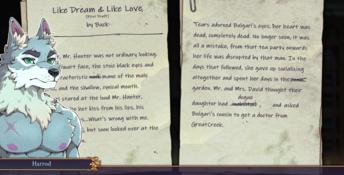 Like Dream & Like Love
(First Draft)
by Back
Mr. Hunter was not ordinary looking.
face, the stoic black eyes and
mane of the male
and the shallow, cynical mouth.
stared at the loud Mr. Hunter,
hot kiss from his lips, his
...What's wrong with me,
but soon looked over at the
Tears adorned Bulgari's eyes, her heart was
dead, completely dead. No longer soon, it was
all a mistake, from that tea party onwards
her life was disrupted by that man. In the
days that followed, she gave up socialising
altogether and spent her days in the
garden. Mr. and Mrs. David thought their
daughter had and asked
Bulgari's cousin to get a doctor from
GreatCreek.
Harrod